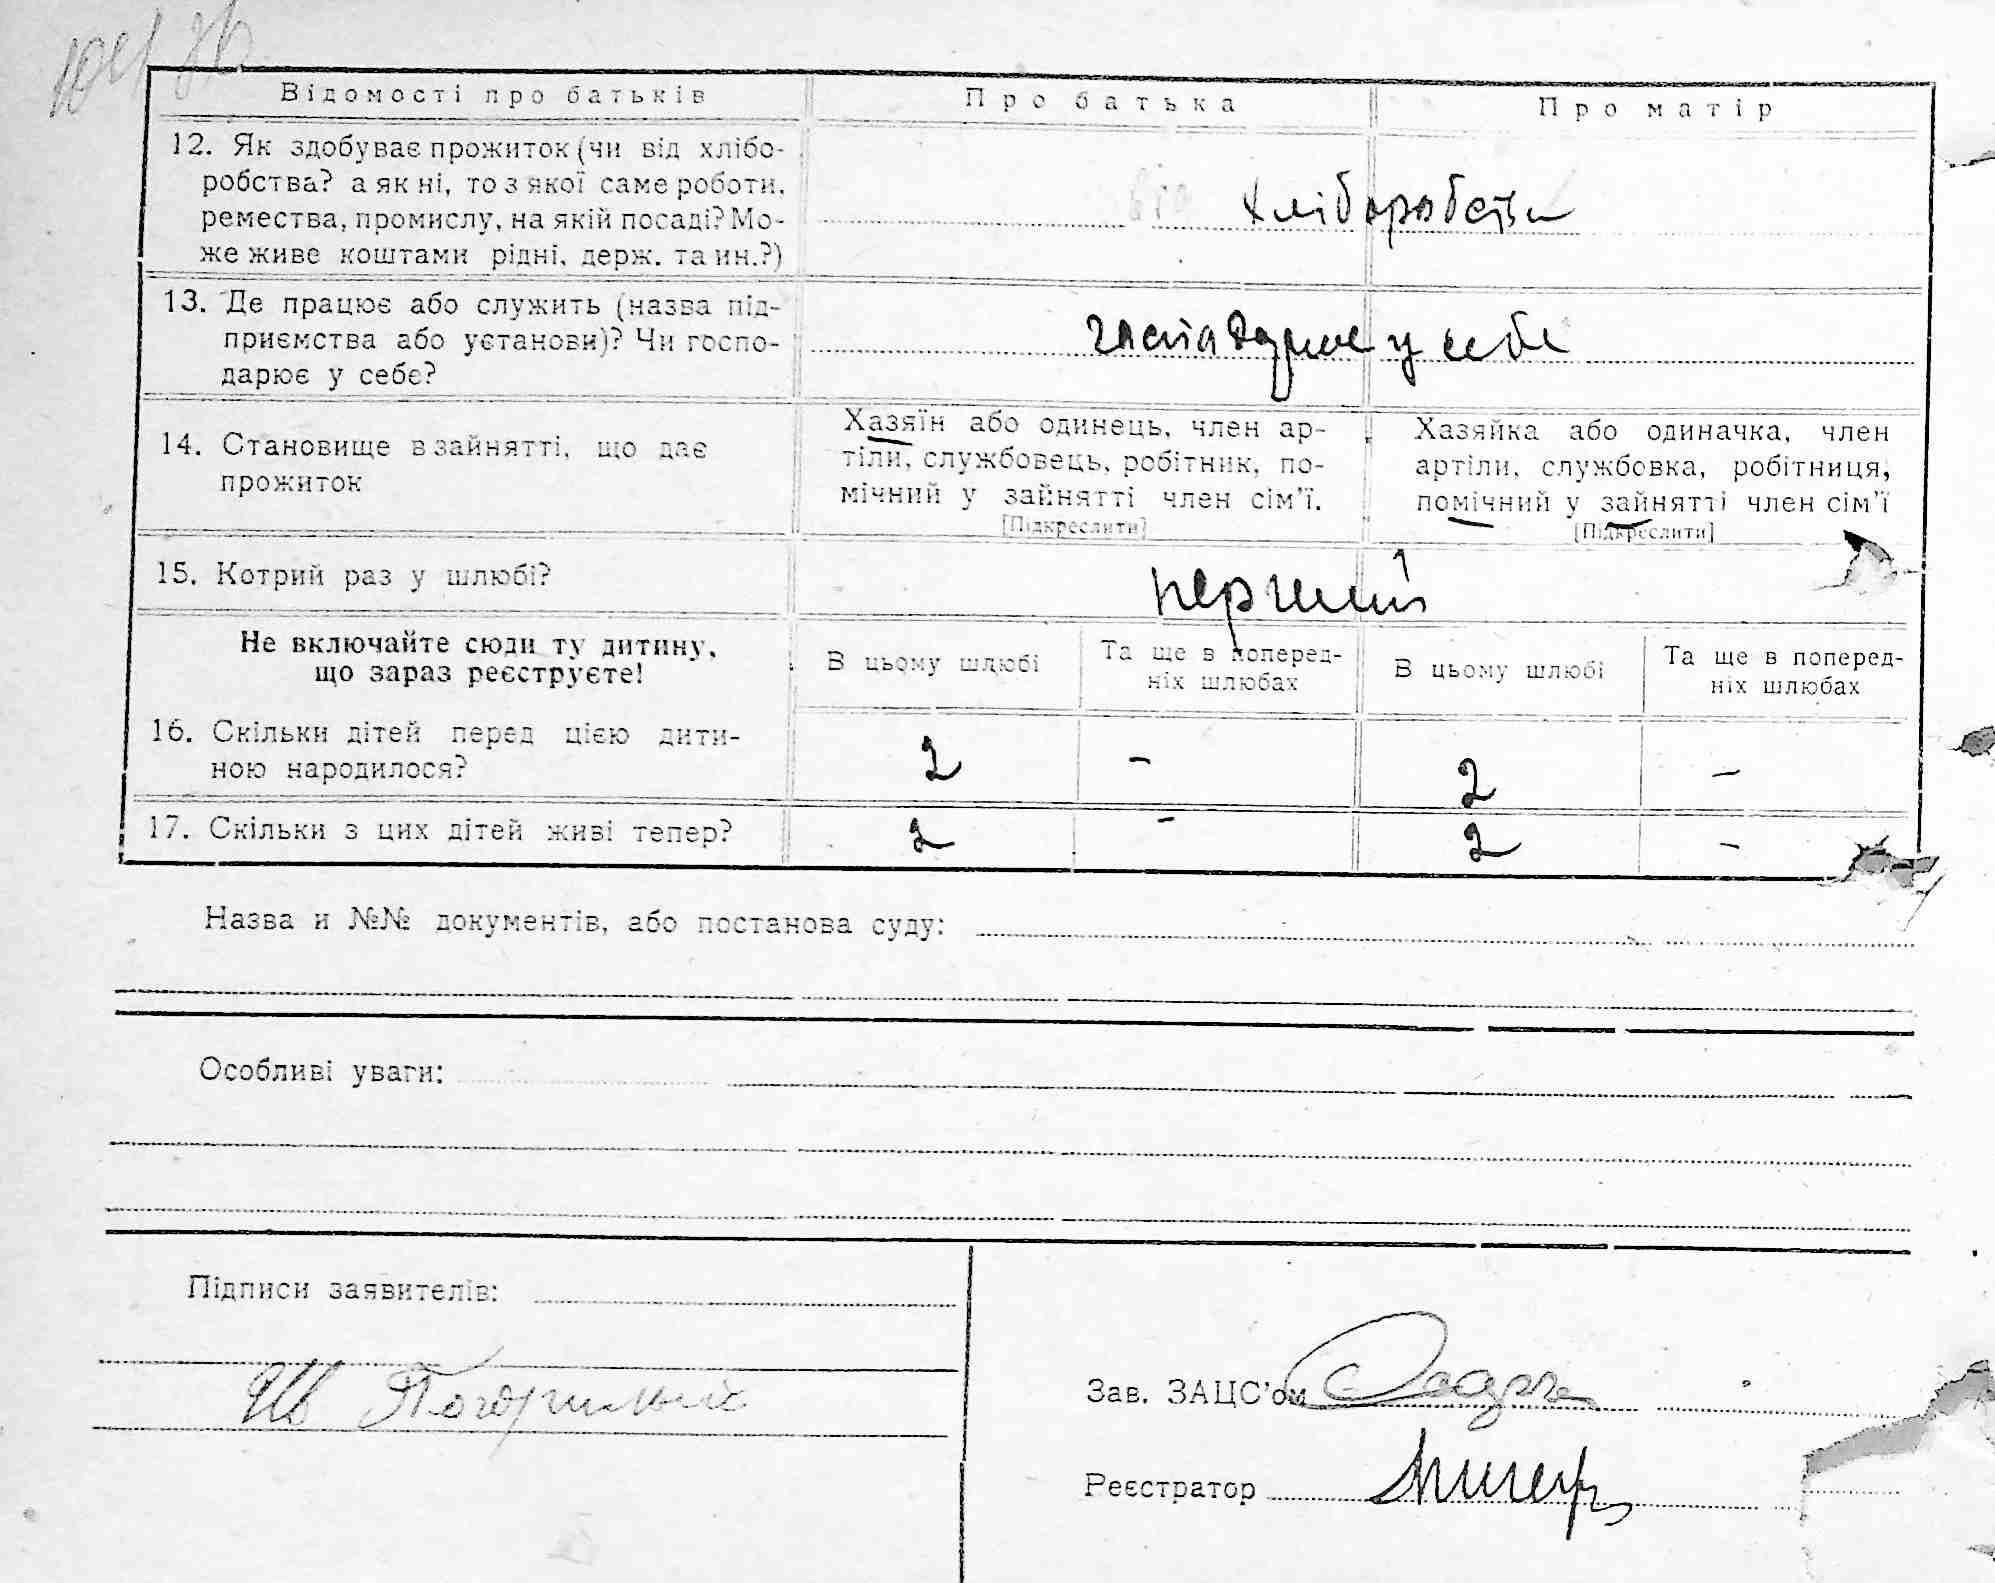 Відомості про батьків
Про батька
Про матір
12. Як здобуває прожиток (чи від хлібо-
робства? а як ні, то з якої саме роботи,
ремества, промислу, на якій посаді? Мо-
же живе коштами рідні, держ. та ин.?)
від хліборобства
13. Де працює або служить (назва під-
приємства або установи)? Чи госпо-
дарює у себе?
господарює у себе
14. Становище в зайнятті, що дає
прожиток
Хазяїн або одинець, член ар-
тіли, службовець, робітник, по-
мічний у зайнятті член сім’ї.
[Підкреслити]
Хазяйка або одиначка, член
артіли, службовка, робітниця,
помічний у зайнятті член сім’ї
[Підкреслити]
15. Котрий раз у шлюбі?
перший
Не включайте сюди ту дитину,
що зараз реєструєте!
В цьому шлюбі
Та ще в поперед-
ніх шлюбах
В цьому шлюбі
Та ще в поперед-
ніх шлюбах
16. Скільки дітей перед цією дити-
ною народилося?
2 - 2 -
17. Скільки з цих дітей живі тепер?
2 - 2 -
Назва и №№ документів, або постанова суду:
Особливі уваги:
Підписи заявителів:
Зав. ЗАЦС’ом
Реєстратор